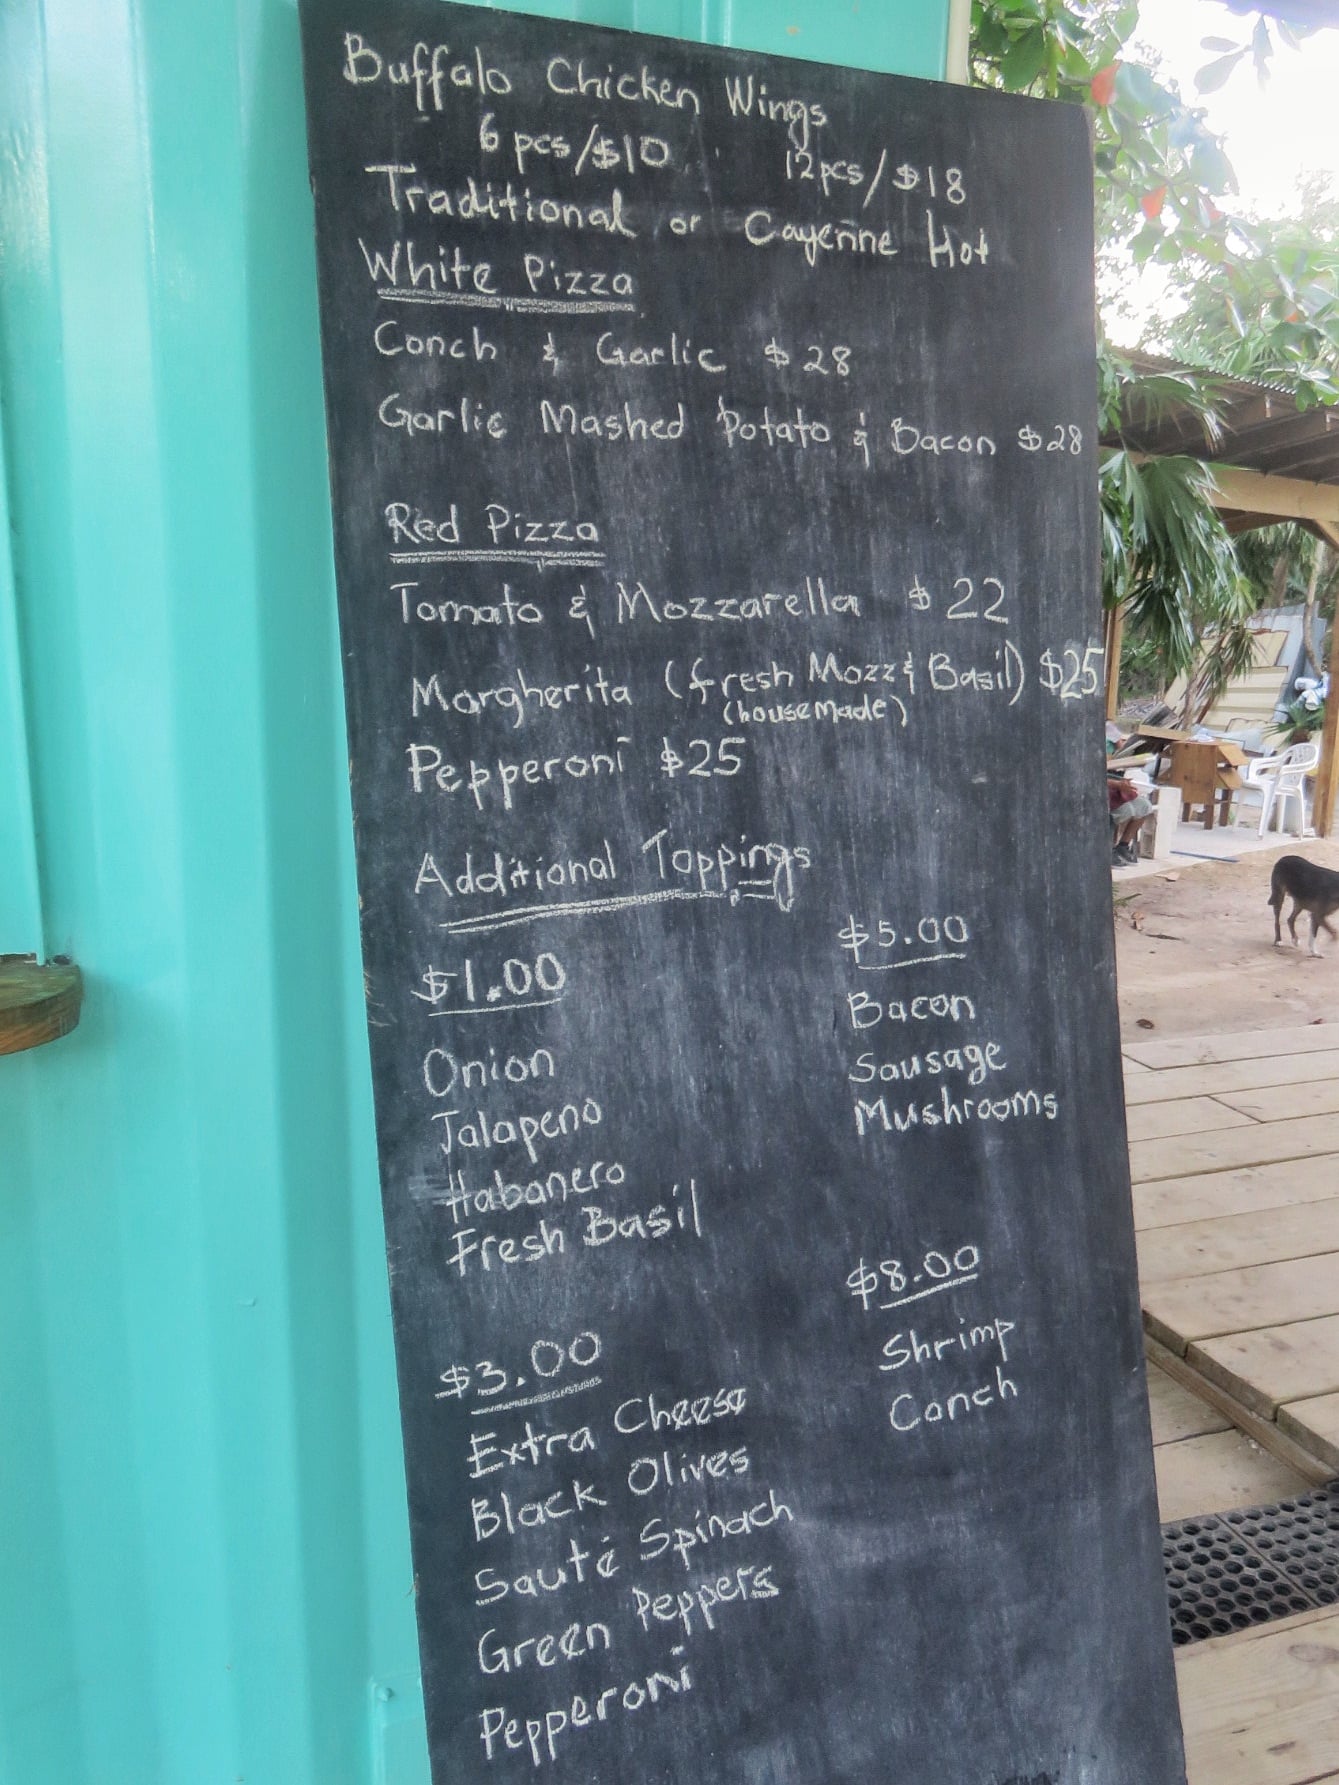 Buffalo Chicken Wings
6 pcs/$10 12pcs/$18
Traditional or Cayenne Hot
White Pizza
Conch & Garlic $28
Garlic Mashed Potato & Bacon $28
Red Pizza
Tomato & Mozzarella $22
Margherita (fresh Mozz & Basil) $25
(housemade)
Pepperoni $25
Additional Toppings
$1.00
Onion
Jalapeno
Habanero
Fresh Basil
$3.00
Extra Cheese
Black Olives
Sauté Spinach
Green Peppers
Pepperoni
$5.00
Bacon
Sausage
Mushrooms
$8.00
Shrimp
Conch